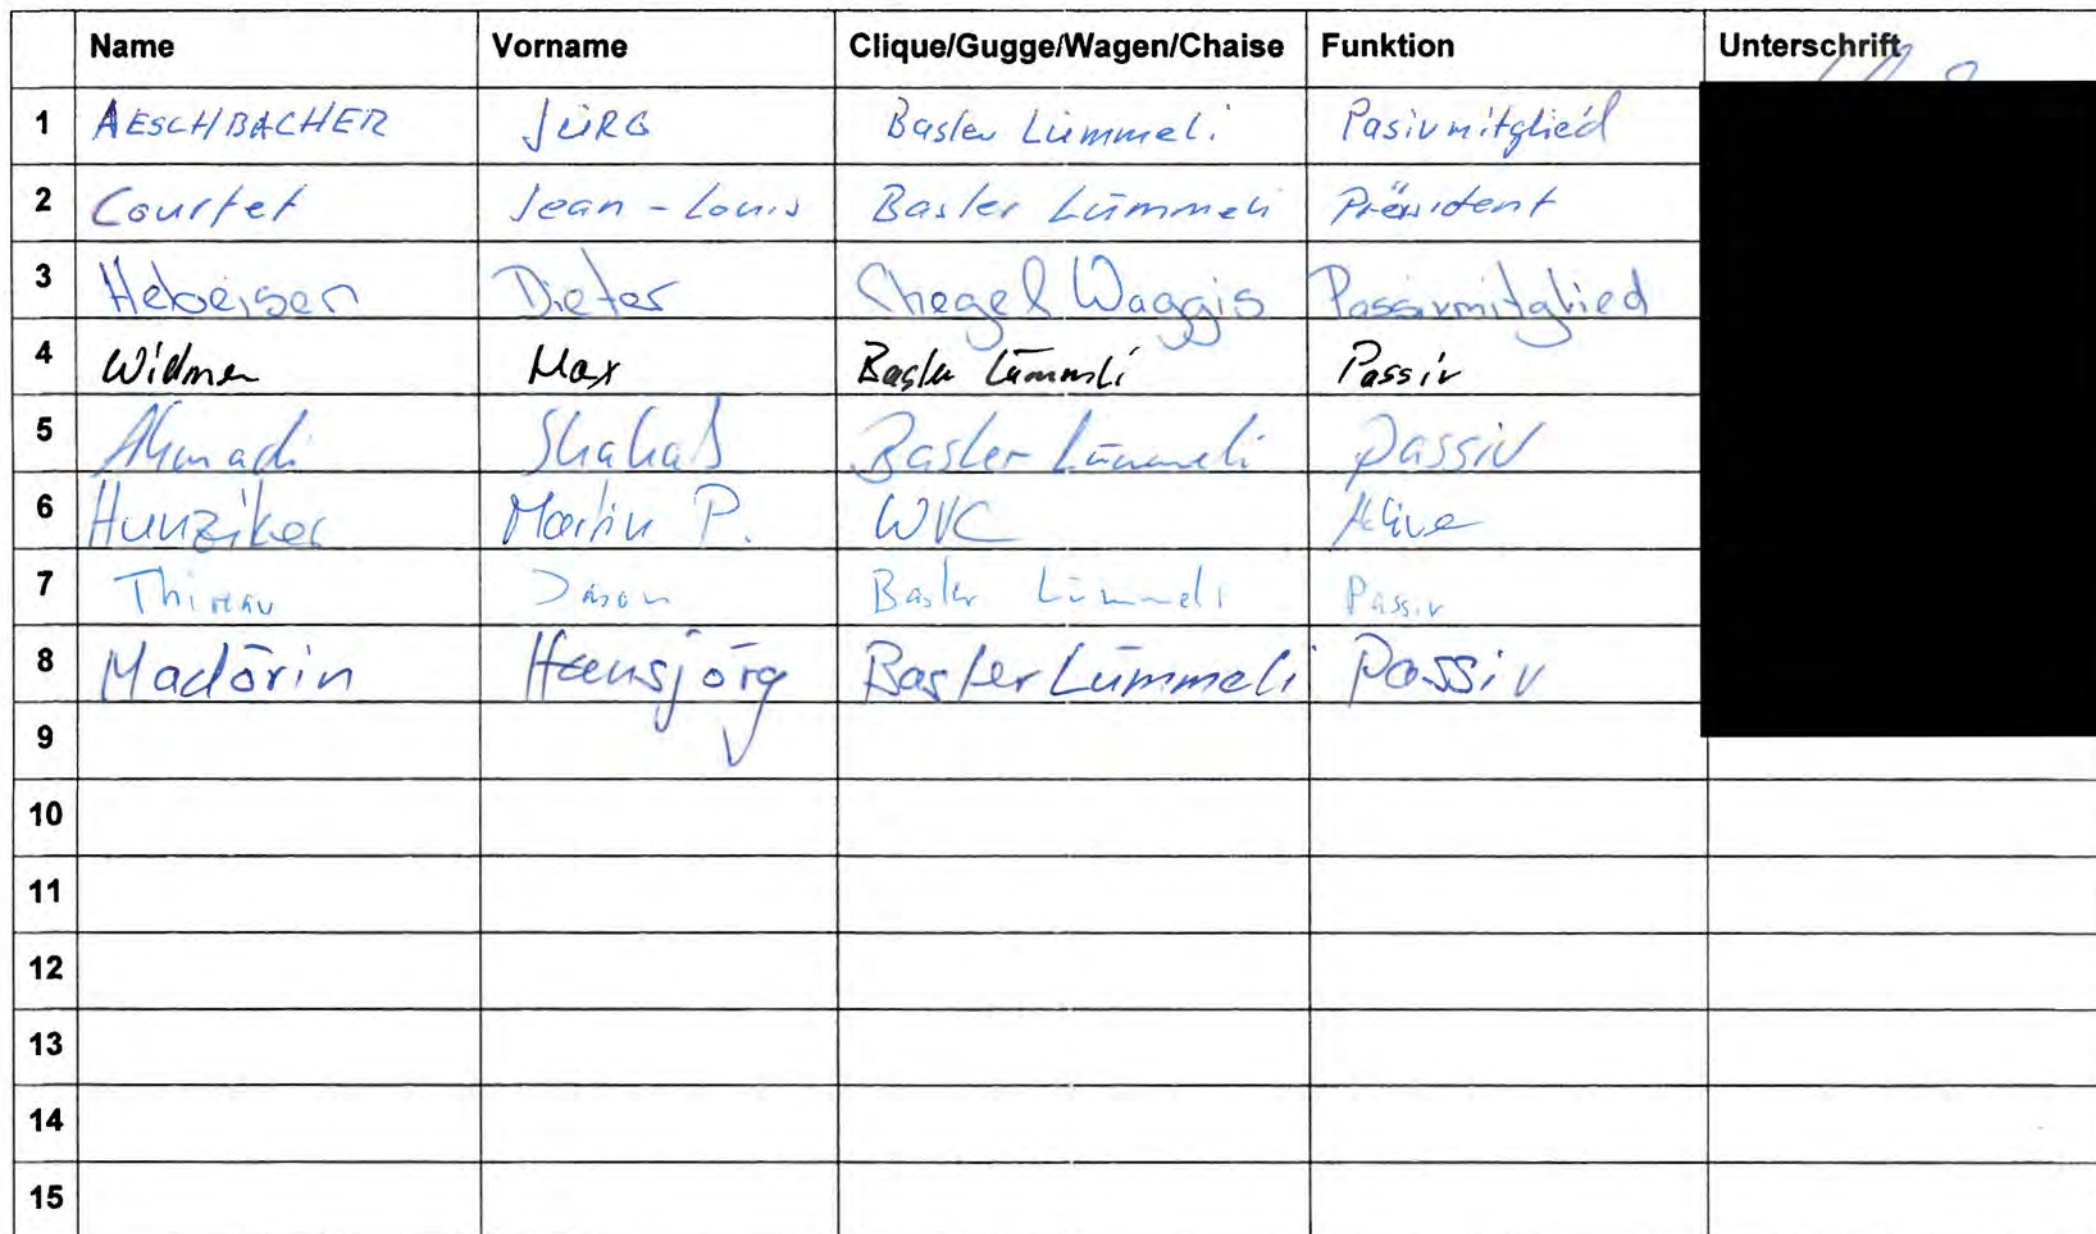 Name Vorname Clique/Gugge/Wagen/Chaise Funktion Unterschrift
1 AESCHBACHER JÜRG Basler Lümmeli Pasivmitglied
2 Courtet Jean-Louis Basler Lümmeli Präsident
3 Hebeisen Dieter Chegel Waggis Passivmitglied
4 Widmer Max Basler Lümmeli Passiv
5 Ahmadi Basler Lümmeli passiv
6 Hunziker Martin P. WVC Aktive
7 Jason Basler Lümmeli Passiv
8 Madörin Hansjörg Basler Lümmeli Passiv
9
10
11
12
13
14
15